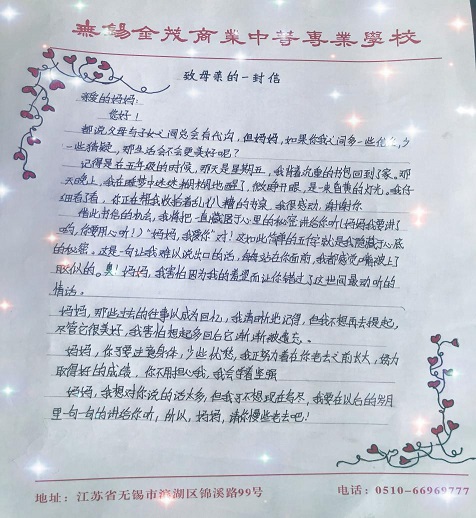 無錫金茂商業中等專業學校
致母亲的一封信
亲爱的妈妈:
您好!
都说父母与子女之间总会有代沟,但妈妈,如果你我之间多一些信,少
一些猜疑,那生活会不会更美好呢?
记得是在五年级的时候,那天是星期五,我背着沉重的书包回到了家。那
天晚上,我在睡梦中迷迷糊糊地醒了,微睁开眼,是一束白黄的灯光。我仔
细看看,你正在帮我收拾着乱的书桌,我很感动,谢谢你
借此书信的机会,我将把一直藏匿于心里的秘密讲给你听(妈妈我要讲了
哟,你要用心听!)"妈妈,我爱你"对!这如此简单的五个字就是我隐藏于心底
的秘密。这是一句让我难以说出口的话,每每站在你面前,我都感觉嘴被上了
胶似的。奥!妈妈,我害怕因为我的羞涩而让你错过了这世间最动听的
情话。
妈妈,那些过去的往事以成为回忆,我清晰地记得,但我不想再去提起,
尽管它很美好,我害怕想起多回后它渐渐被遗忘。
妈妈,你可要注意身体,少些忧愁,我正努力着在你老去之前长大,努力
取得好的成绩,你不用担心我,我会学着坚强
妈妈,我想对你说的话太多,但我可不想现在句尽,我要在以后的岁月
里一句一句的讲给你听,所以,妈妈,请你慢些老去吧!
地址:江苏省无锡市滨湖区锦溪路99号
电话:0510-66969777